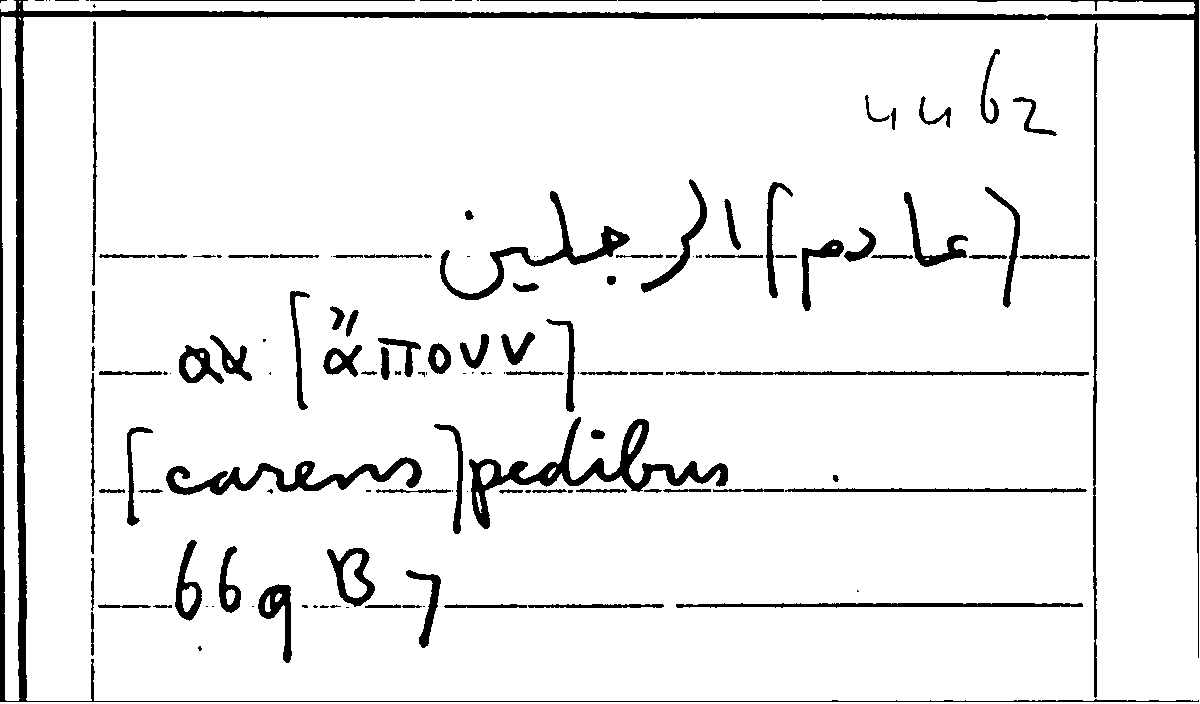 4462
[عادم] الرجلين
[ἄπουν]
[carens] pedibus
669 B 7